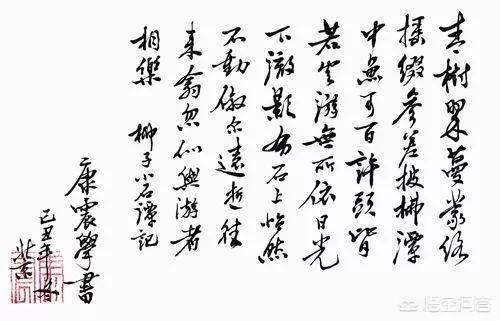 青樹翠蔓蒙絡
摇綴參差披拂潭
中魚可百許頭皆
若空游無所依日光
下澈影布石上怡然
不動俶尔遠逝往
来翕忽似與游者
相樂 柳子小石潭記
康震學書
己丑年
悟空问答